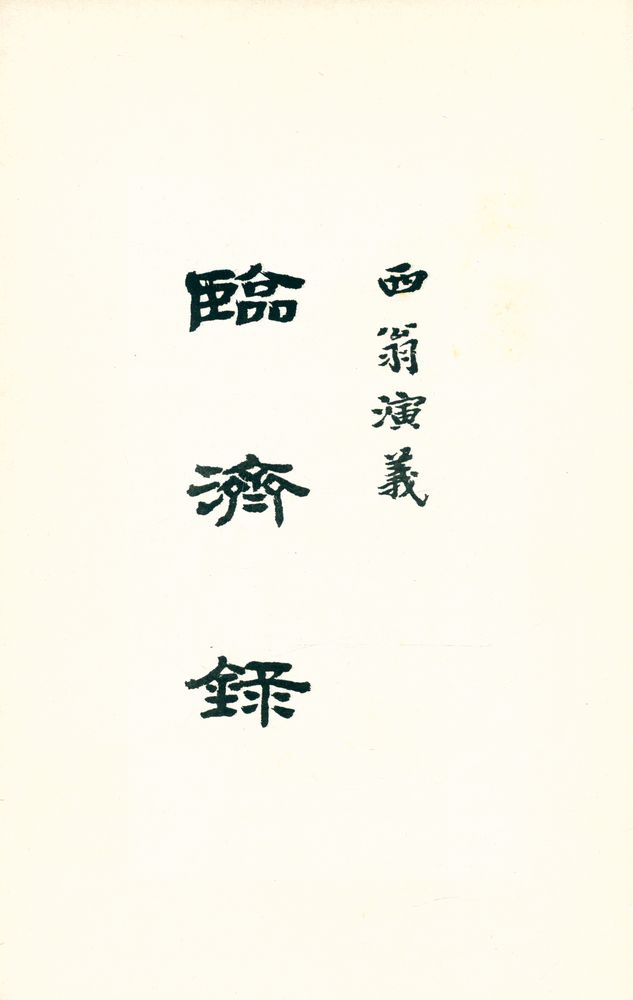 西翁演義
臨濟録